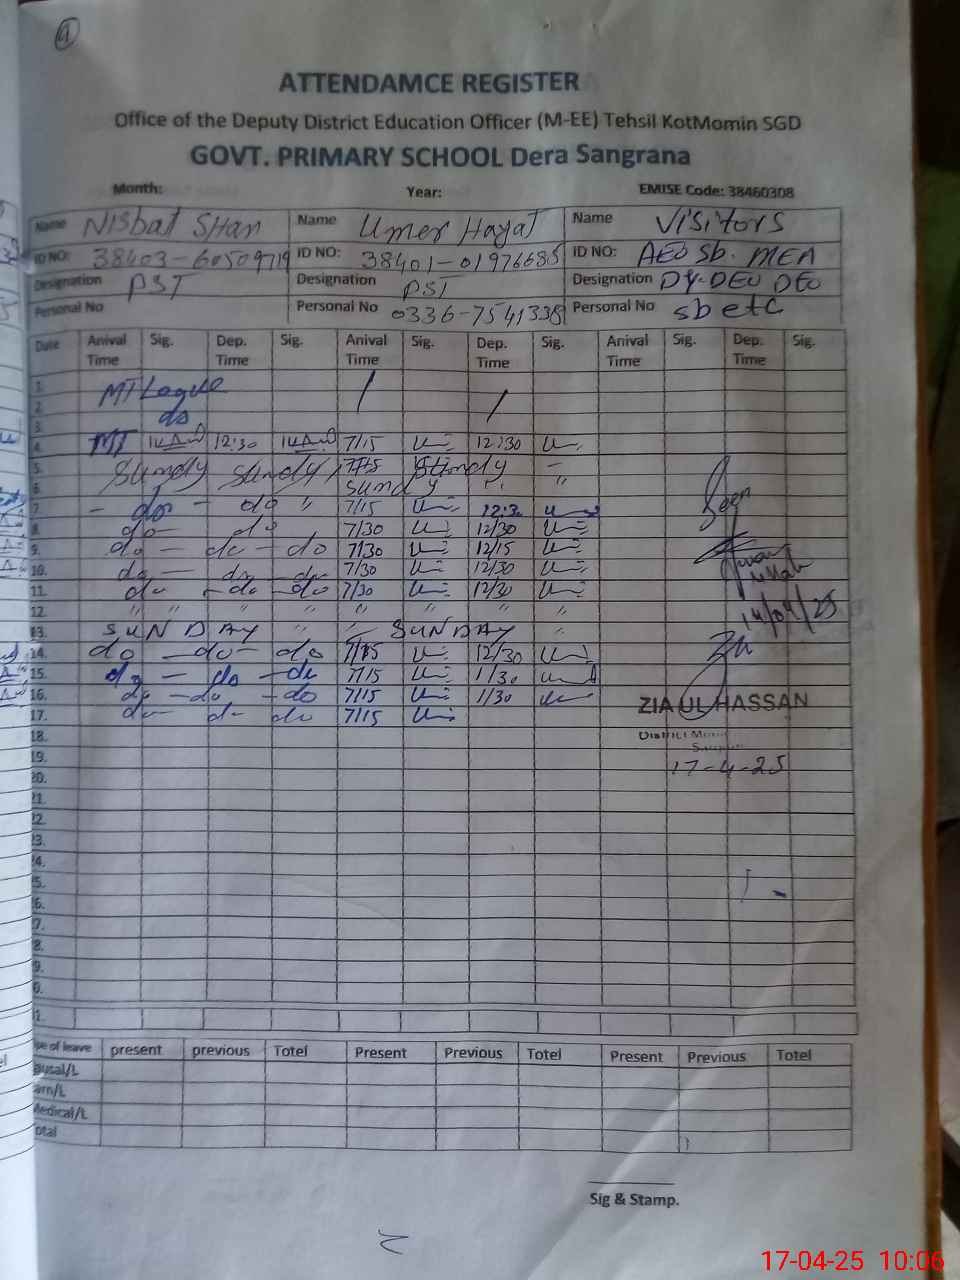 ATTENDAMCE REGISTER
Office of the Deputy District Education Officer (M-EE) Tehsil KotMomin SGD
GOVT. PRIMARY SCHOOL Dera Sangrana
Month: Year: EMISE Code: 38460308
Name Nisbat Shan Name Umer Hayat Name Visitors
ID NO: 38403-60509719 ID NO: 38401-01976685 ID NO: AEO Sb. MEA
Designation PST Designation PST Designation DY-DEO DEO
Personal No Personal No 0336-7541338 Personal No sb etc
Date Anival Time Sig. Dep. Time Sig. Anival Time Sig. Dep. Time Sig. Anival Time Sig. Dep. Time Sig.
1. MT Leave
2. do
3.
4. MT 12:30 7/15 12:30
5. Sundy Sundy 7/15 Sundy -
6. Sundy "
7. - do - do " 7/15 12:30
8. do - do 7/30 12/30
9. do - do - do 7/30 12/15
10. do - do - do 7/30 12/30
11. do - do - do 7/30 12/30
12. " " " " " " " "
13. SUNDAY " SUNDAY "
14. do - do - do 7/15 12/30
14/04/25
15. do - do - do 7/15 1/30
16. do - do - do 7/15 1/30
ZIA UL HASSAN
17. do do do 7/15
18.
District
19.
17-4-25
20.
21.
22.
23.
4.
5.
6.
7.
8.
9.
0.
1.
pe of leave present previous Totel Present Previous Totel Present Previous Totel
ausal/L
arn/L
Medical/L
otal
Sig & Stamp.
17-04-25 10:06